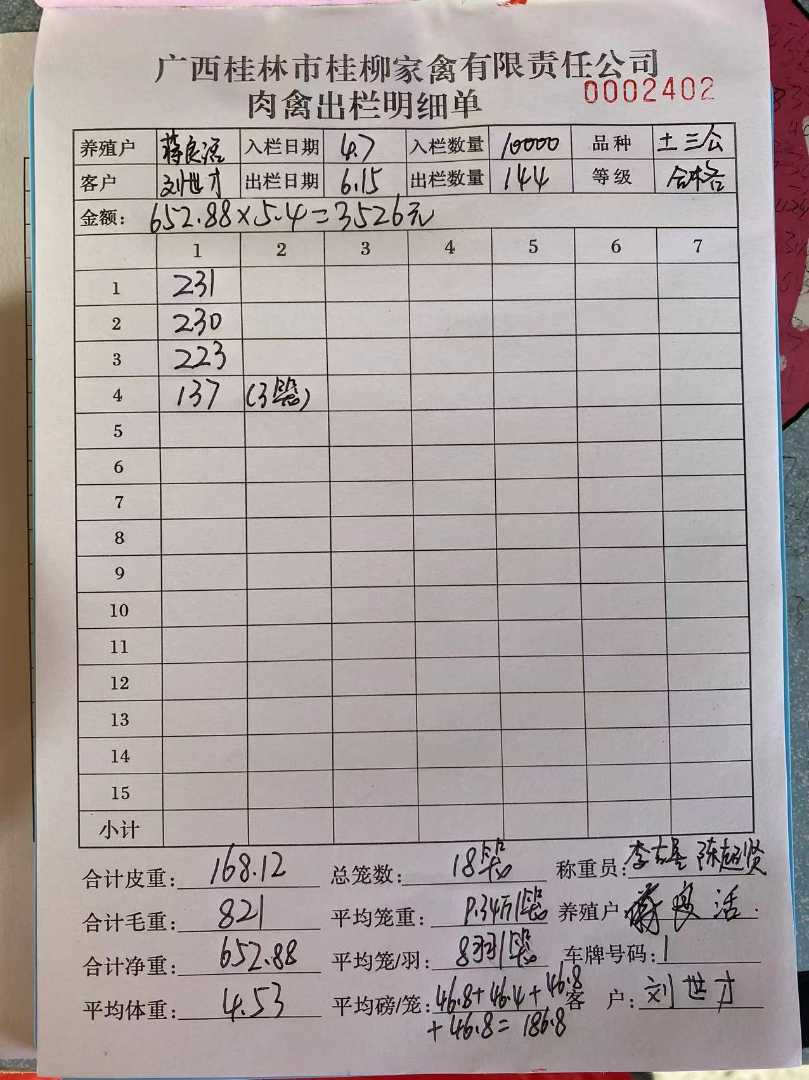 广西桂林市桂柳家禽有限责任公司
肉禽出栏明细单 0002402
养殖户 蒋良活 入栏日期 4.7 入栏数量 10000 品种 土三公
客户 刘世才 出栏日期 6.15 出栏数量 144 等级 合格
金额: 652.88×5.4=3526元
1 2 3 4 5 6 7
1 231
2 230
3 223
4 137 (3笼)
5
6
7
8
9
10
11
12
13
14
15
小计
合计皮重: 168.12 总笼数: 18笼 称重员: 陈超贤
合计毛重: 821 平均笼重: 9.34斤/笼 养殖户 蒋良活
合计净重: 652.88 平均笼/羽: 8羽/笼 车牌号码:
平均体重: 4.53 平均磅/笼: 46.8+46.4+46.8 客户: 刘世才
+46.8=186.8